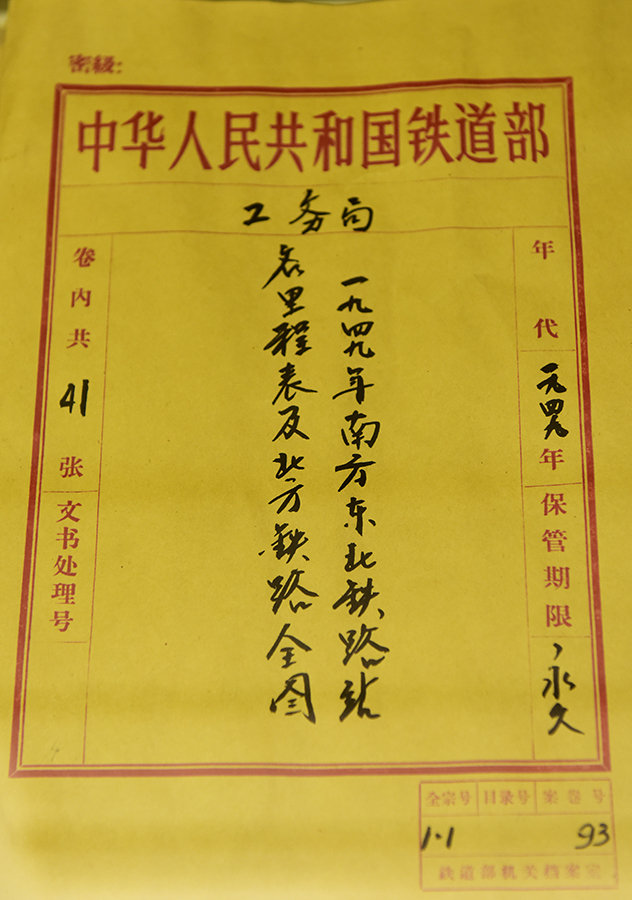 密级：
中华人民共和国铁道部
工务局
年代
一九四九
年
保管期限
永久
一九四九年南方东北铁路站
名里程表及北方铁路全图
卷内共
41
张
文书处理号
全宗号 目录号 案卷号
1·1 93
铁道部机关档案室